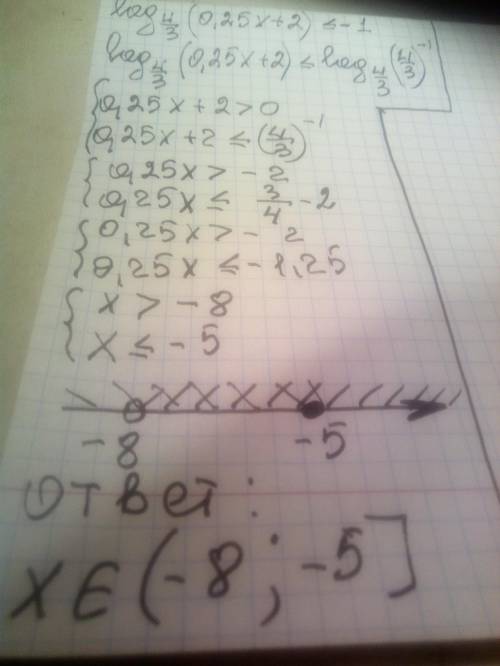 log₄/₃ (0,25x+2) ≤ -1
log₄/₃ (0,25x+2) ≤ log₄/₃ (4/3)⁻¹
{ 0,25x + 2 > 0
0,25x + 2 ≤ (4/3)⁻¹
{ 0,25x > -2
0,25x ≤ 3/4 - 2
{ 0,25x > -2
0,25x ≤ -1,25
{ x > -8
x ≤ -5
-8 -5
Ответ:
x∈(-8; -5]